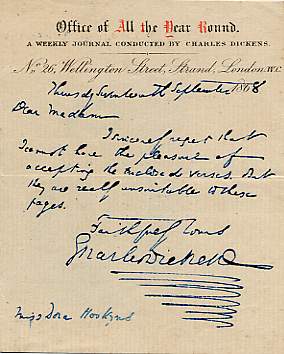 Office of All the Year Round.
A WEEKLY JOURNAL CONDUCTED BY CHARLES DICKENS.
No. 26, Wellington Street, Strand, London. W.C.
Thursday Seventeenth September 1868
Dear Madam
I sincerely regret that
I cannot have the pleasure of
accepting the enclosed verses. But
they are really unsuitable to these
pages.
Faithfully Yours
Charles Dickens
Miss Dora